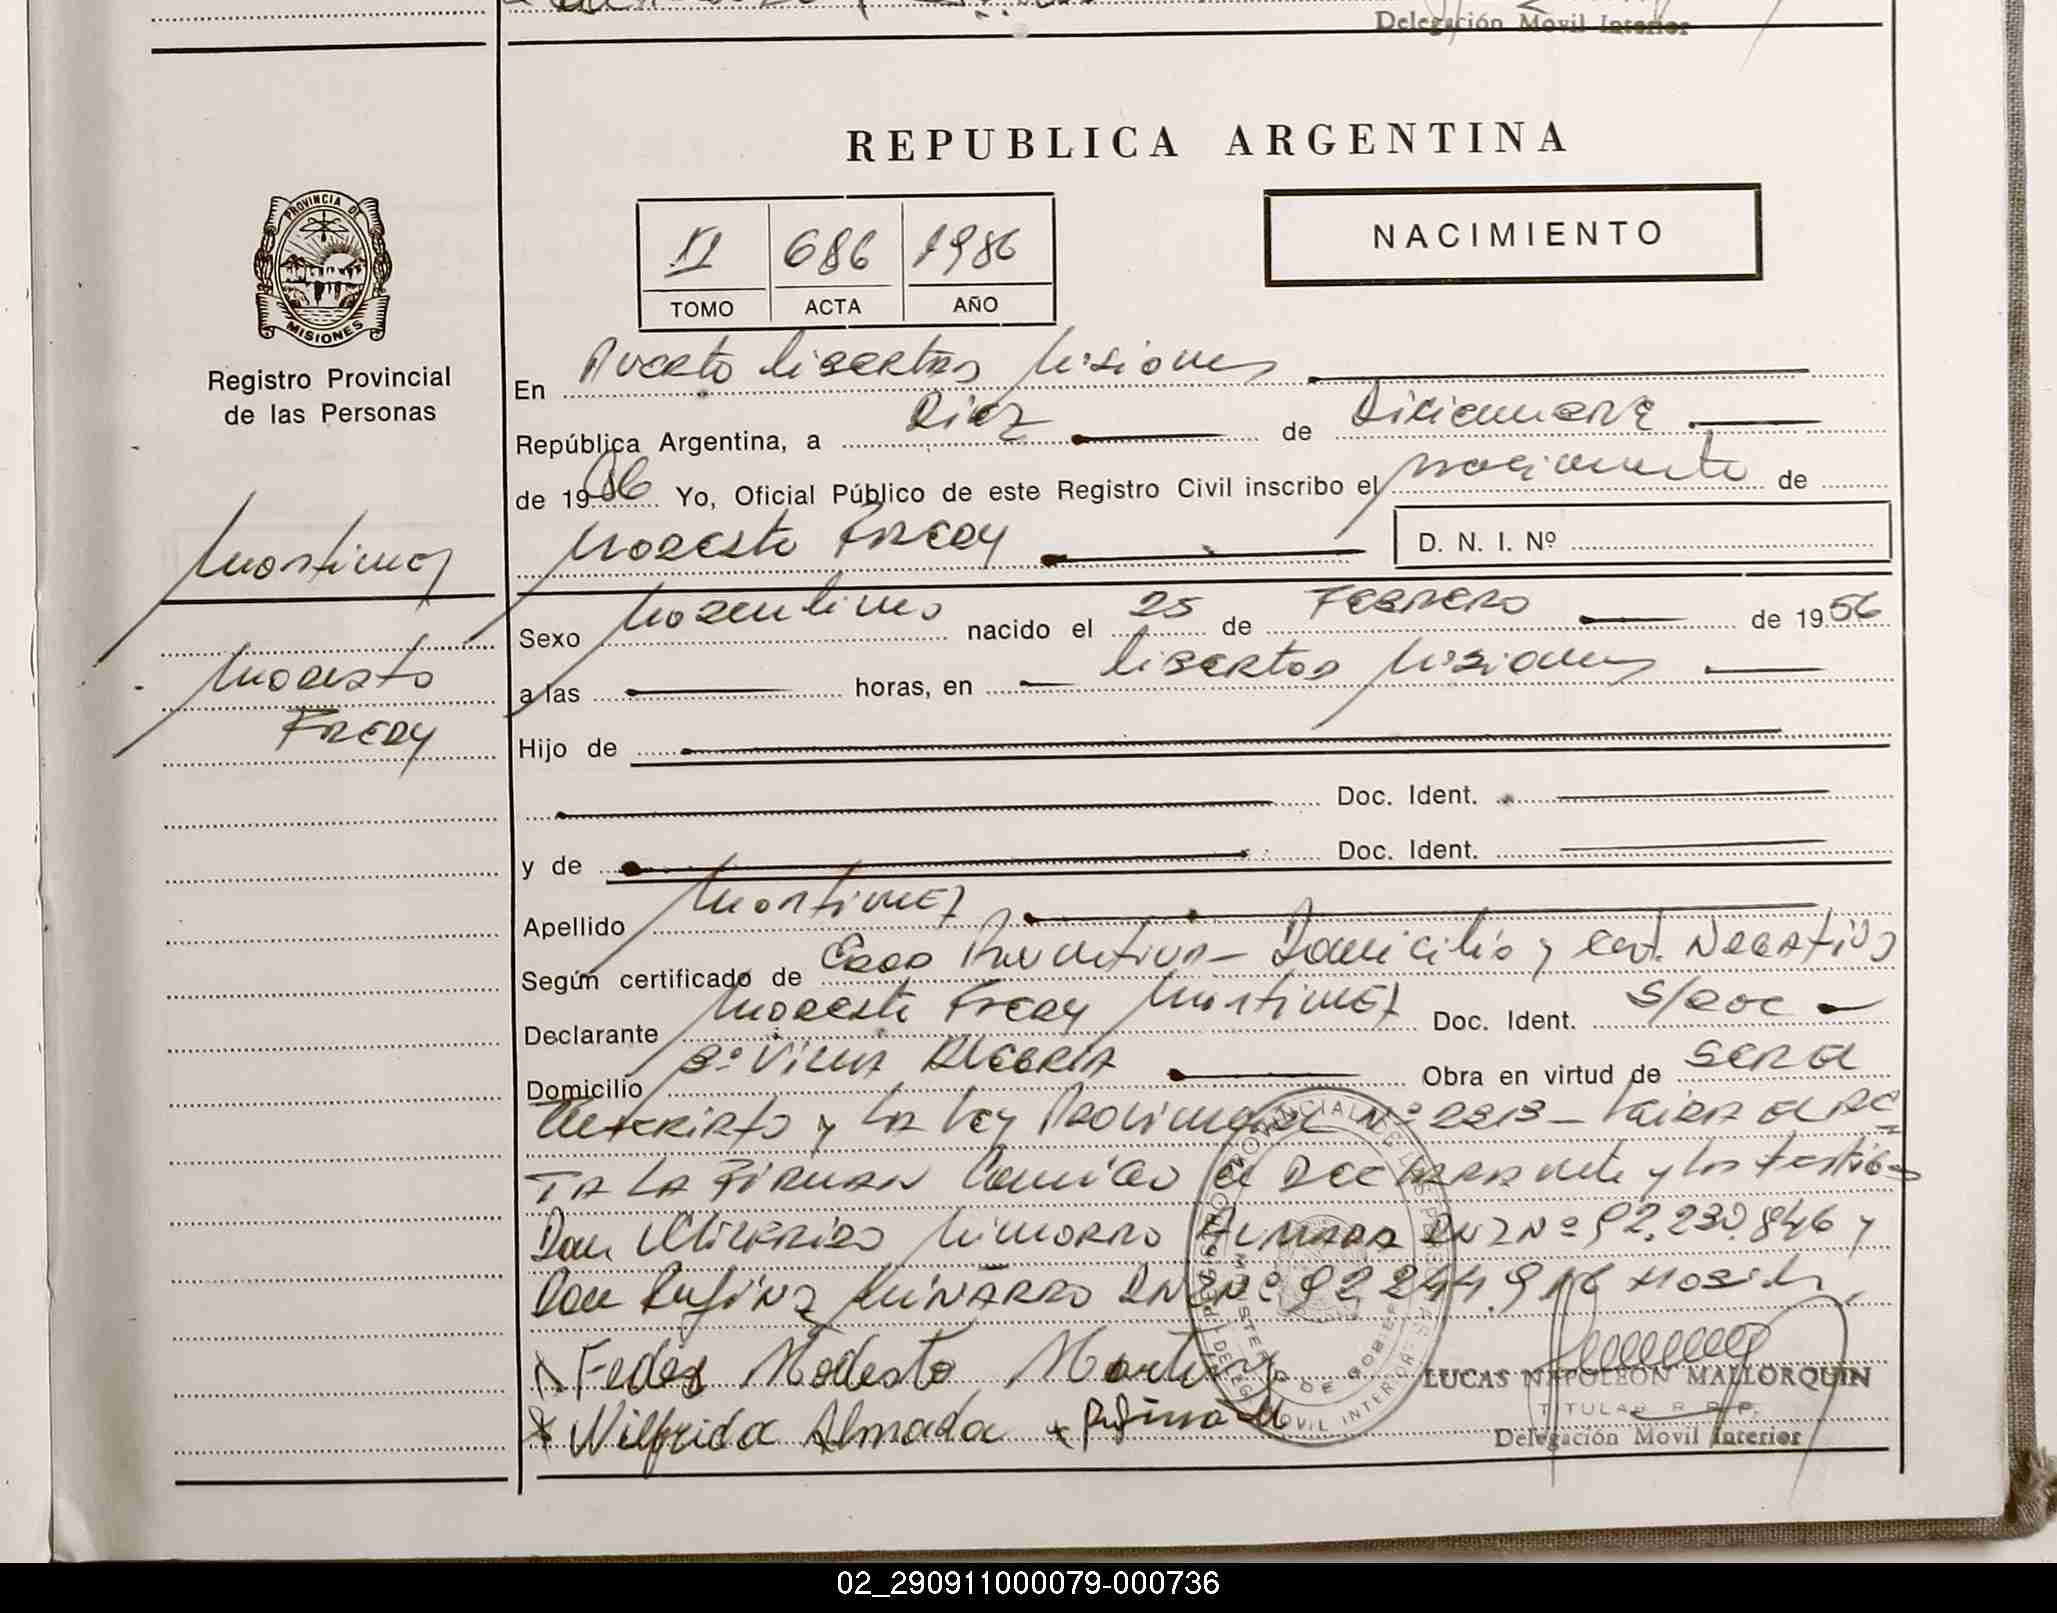 Delegación Movil Interior
REPUBLICA ARGENTINA
PROVINCIA DE
MISIONES
Registro Provincial
de las Personas
II 686 1986
TOMO ACTA AÑO
NACIMIENTO
En Puerto Libertad Misiones
República Argentina, a Diez de Diciembre
de 1986 Yo, Oficial Público de este Registro Civil inscribo el nacimiento de
Modesto Fredy D. N. I. Nº
Martinez
Modesto
Fredy
Sexo Masculino nacido el 25 de Febrero de 1956
a las horas, en Libertad Misiones
Hijo de
Doc. Ident.
y de Doc. Ident.
Apellido Martinez
Según certificado de Edad Domicilio y cert. Negativo
Declarante Modesto Fredy Martinez Doc. Ident. S/Doc
Domicilio Bº Villa Alegria Obra en virtud de
y la Ley Provincial Nº 2213 - Leida el Ac
ta la Firman Conmigo el Declarante y los testigos
Don Wilfrido Almada DNI Nº 92.230.846 y
Don Rufino Miñarro DNI Nº 92 244.916
Fedes Modesto Martinez
Wilfrida Almada Rufino M
LUCAS NAPOLEON MALLORQUIN
TITULAR R. P. P.
Delegación Movil Interior
02_290911000079-000736